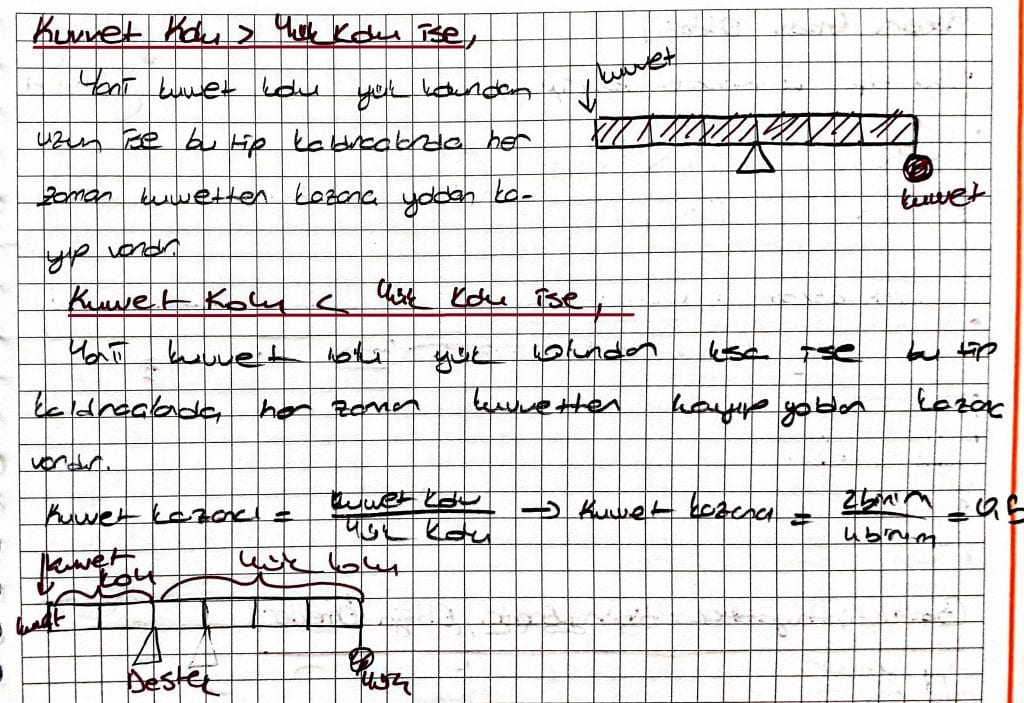 Kuvvet Kolu > Yük Kolu ise,
Yani kuvvet kolu yük kolundan
kuvvet
uzun ise bu tip kaldıraçlarda her
zaman kuvvetten kazanç yoldan ka-
kuvvet
yıp vardır.
Kuvvet Kolu < Yük Kolu ise,
Yani kuvvet kolu yük kolundan kısa ise bu tip
kaldıraçlarda, her zaman kuvvetten kayıp yoldan kazanç
vardır.
Kuvvet kazancı = kuvvet kolu / Yük Kolu → Kuvvet kazancı = 2 birim / 4 birim = 0,5
kuvvet kolu
Yük kolu
kuvvet
Destek
Yük